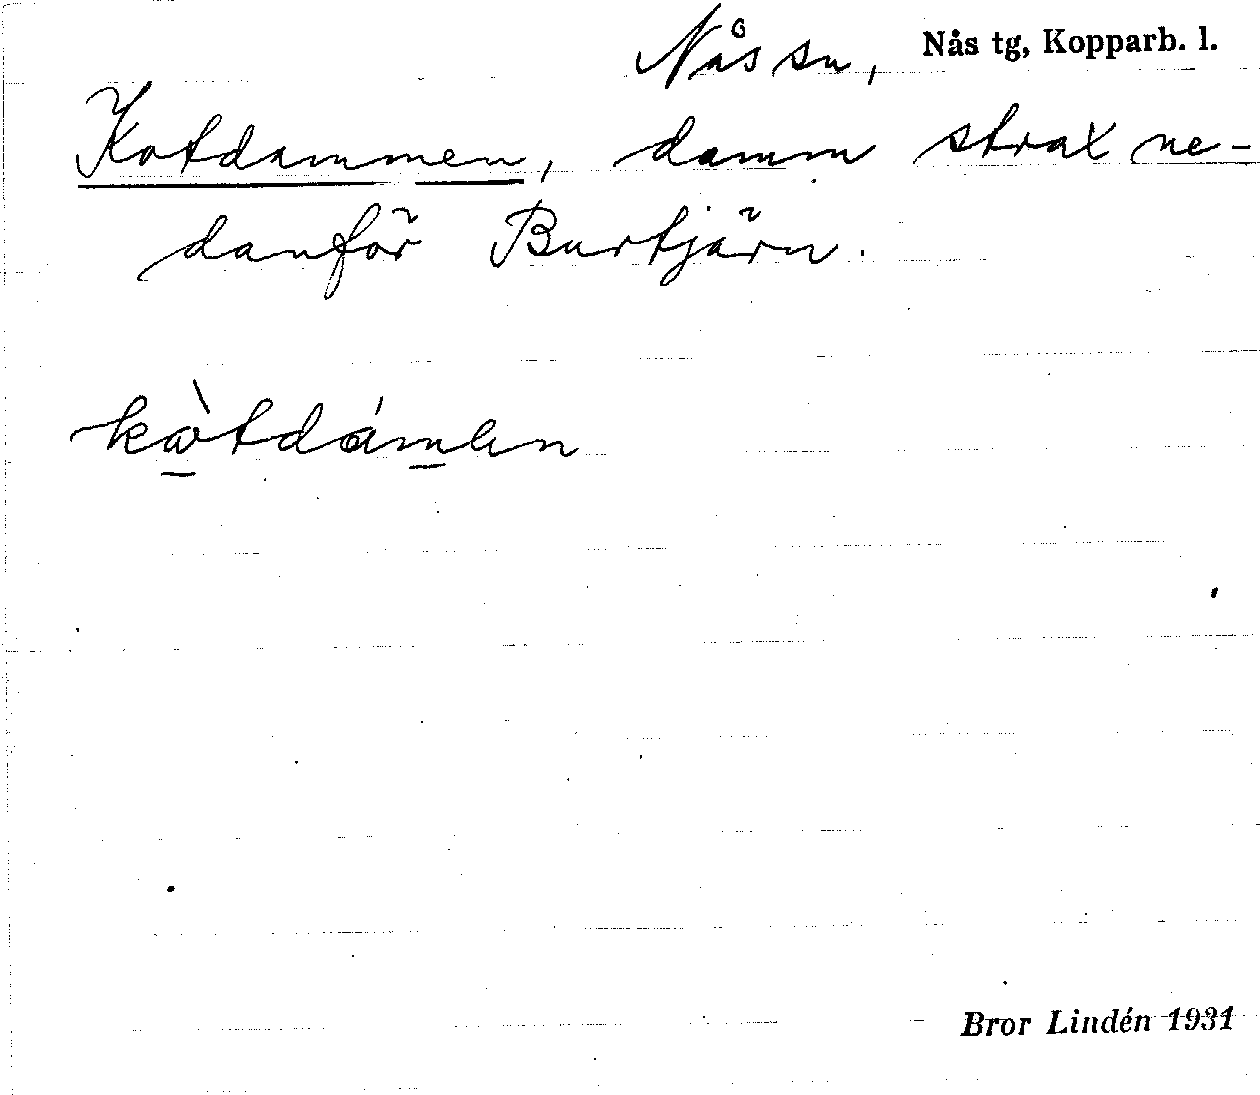 Nås sn, Nås tg, Kopparb. l.
Kotdammen, damm strax ne-
danför Burtjärn.
kòtdámən
Bror Lindén 1931